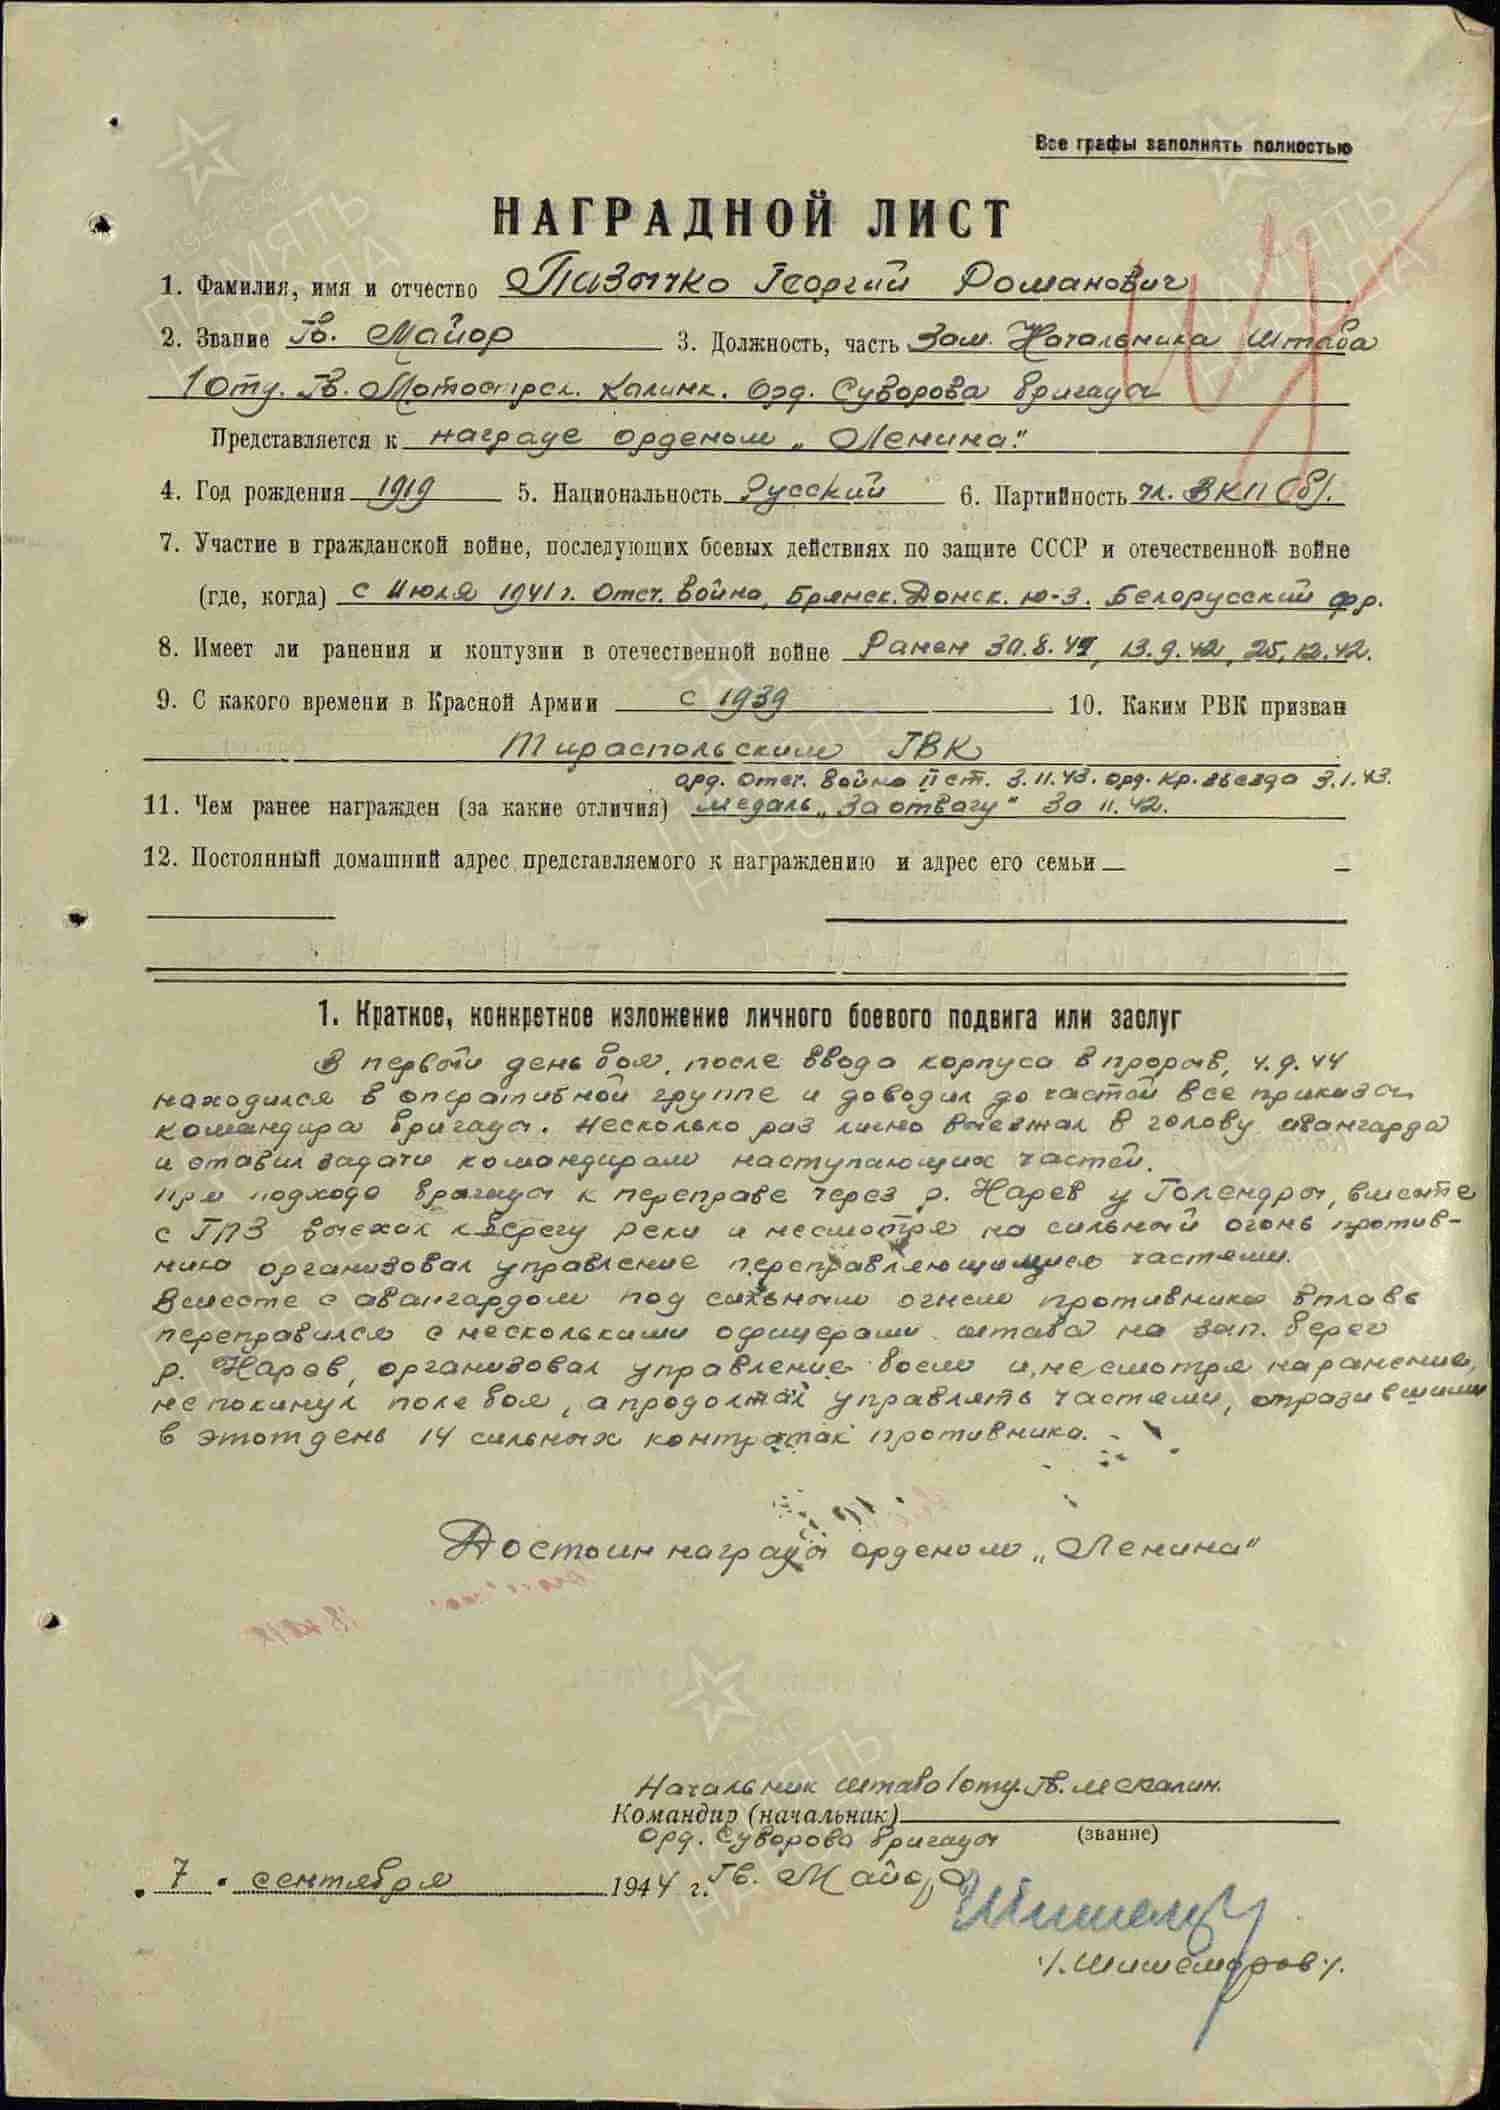 Все графы заполнять полностью
НАГРАДНОЙ ЛИСТ
1. Фамилия, имя и отчество Пазычко Георгий Романович
2. Звание Гв. Майор 3. Должность, часть Зам. Начальника Штаба
1 Отд. Гв. Мотострел. Калинк. Орд. Суворова бригады
Представляется к награде орденом „Ленина"
4. Год рождения 1919 5. Национальность Русский 6. Партийность чл. ВКП(б).
7. Участие в гражданской войне, последующих боевых действиях по защите СССР и отечественной войне
(где, когда) с Июля 1941 г. Отеч. война, Брянск. Донск. ю-з. Белорусский фр.
8. Имеет ли ранения и контузии в отечественной войне Ранен 13.9.42, 25.12.42.
9. С какого времени в Красной Армии с 1939 10. Каким РВК призван
Тираспольским ГВК
орд. Отеч. война II ст. 3.11.43. орд. Кр. звезда 3.1.43.
11. Чем ранее награжден (за какие отличия) медаль „За отвагу" 11.42.
12. Постоянный домашний адрес представляемого к награждению и адрес его семьи — —
1. Краткое, конкретное изложение личного боевого подвига или заслуг
В первый день боя, после ввода корпуса в прорыв, 4.9.44
находился в оперативной группе и доводил до частей все приказы
командира бригады. Несколько раз лично выезжал в голову авангарда
и ставил задачи командирам наступающих частей.
При подходе бригады к переправе через р. Нарев у Голендры, вместе
с ГПЗ выехал к берегу реки и несмотря на сильный огонь против-
ника организовал управление переправляющимися частями.
Вместе с авангардом под сильным огнем противника вплавь
переправился с несколькими офицерами штаба на зап. берег
р. Нарев, организовал управление боем и, несмотря на ранение,
не покинул поле боя, а продолжал управлять частями, отразившими
в этот день 14 сильных контратак противника.
Достоин награды орденом „Ленина"
Начальник штаба 1 отд. Гв. мс калин.
Командир (начальник)
Орд. Суворова бригады (звание)
„7" сентября 1944 г. Гв. Майор
/. Шишемаров /.
ПАМЯТЬ
НАРОДА